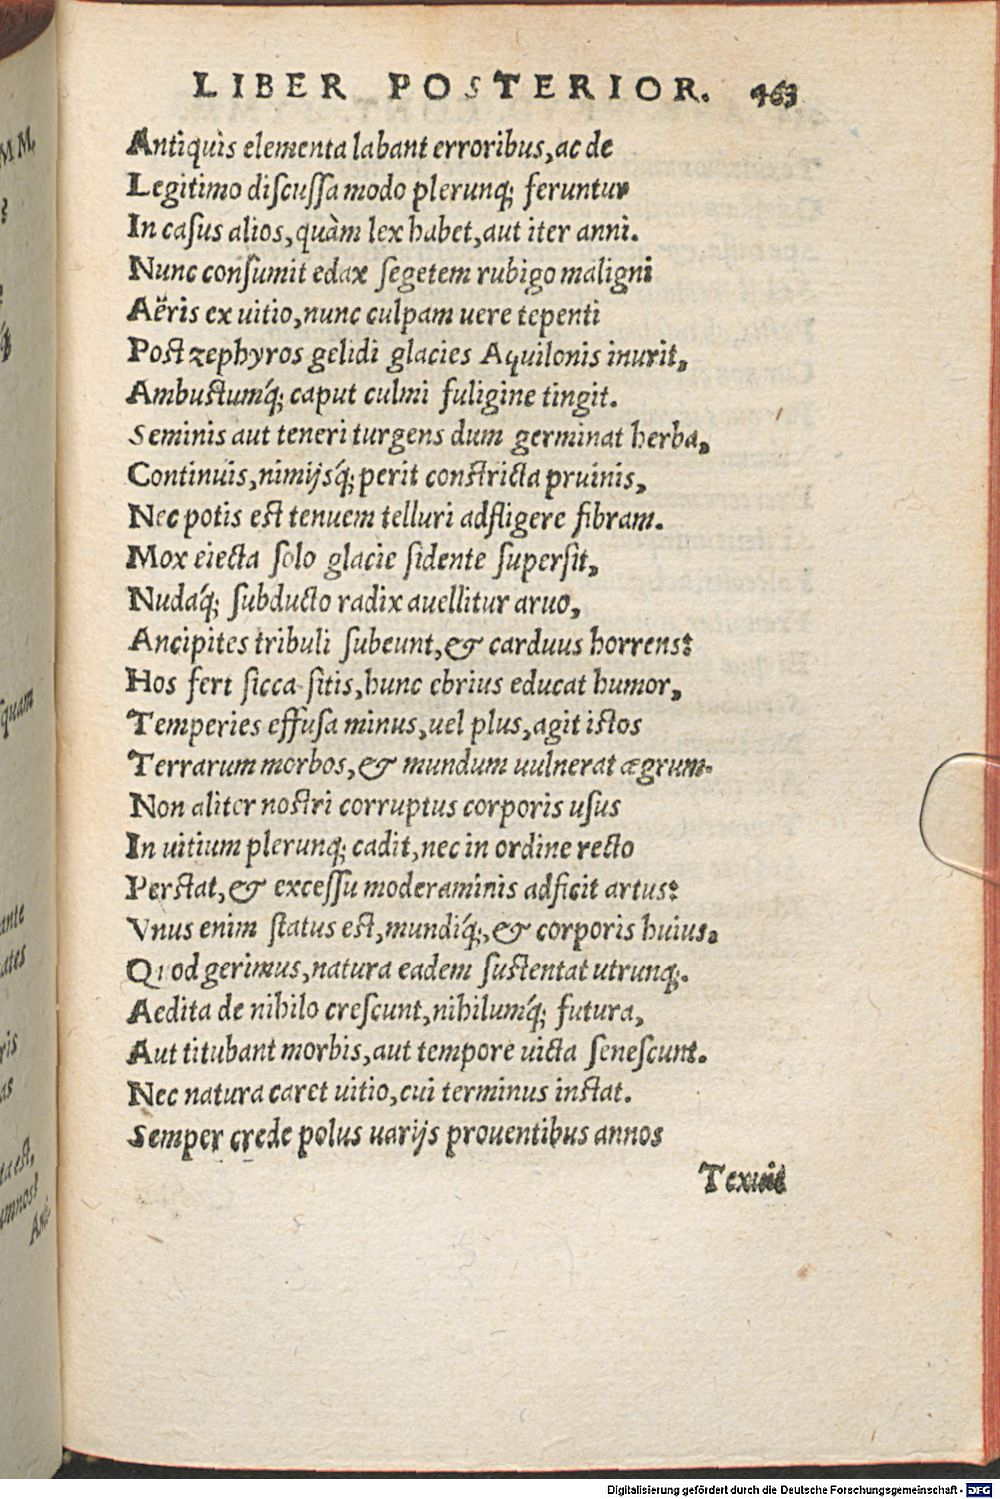 LIBER POSTERIOR. 463
Antiquis elementa labant erroribus, ac de
Legitimo discussa modo plerunq; feruntur
In casus alios, quàm lex habet, aut iter anni.
Nunc consumit edax segetem rubigo maligni
Aëris ex uitio, nunc culpam uere tepenti
Post zephyros gelidi glacies Aquilonis inurit,
Ambustumq́; caput culmi fuligine tingit.
Seminis aut teneri turgens dum germinat herba,
Continuis, nimijsq́; perit constricta pruinis,
Nec potis est tenuem telluri adfligere fibram.
Mox eiecta solo glacie sidente supersit,
Nudaq́; subducto radix auellitur aruo,
Ancipites tribuli subeunt, & carduus horrens:
Hos fert sicca sitis, hunc ebrius educat humor,
Temperies effusa minus, uel plus, agit istos
Terrarum morbos, & mundum uulnerat ægrum.
Non aliter nostri corruptus corporis usus
In uitium plerunq; cadit, nec in ordine recto
Perstat, & excessu moderaminis adficit artus:
Vnus enim status est, mundiq́;, & corporis huius.
Quod gerimus, natura eadem sustentat utrunq;.
Aedita de nihilo crescunt, nihilumq́; futura,
Aut titubant morbis, aut tempore uicta senescunt.
Nec natura caret uitio, cui terminus instat.
Semper crede polus uarijs prouentibus annos
Texuit
Digitalisierung gefördert durch die Deutsche Forschungsgemeinschaft - DFG